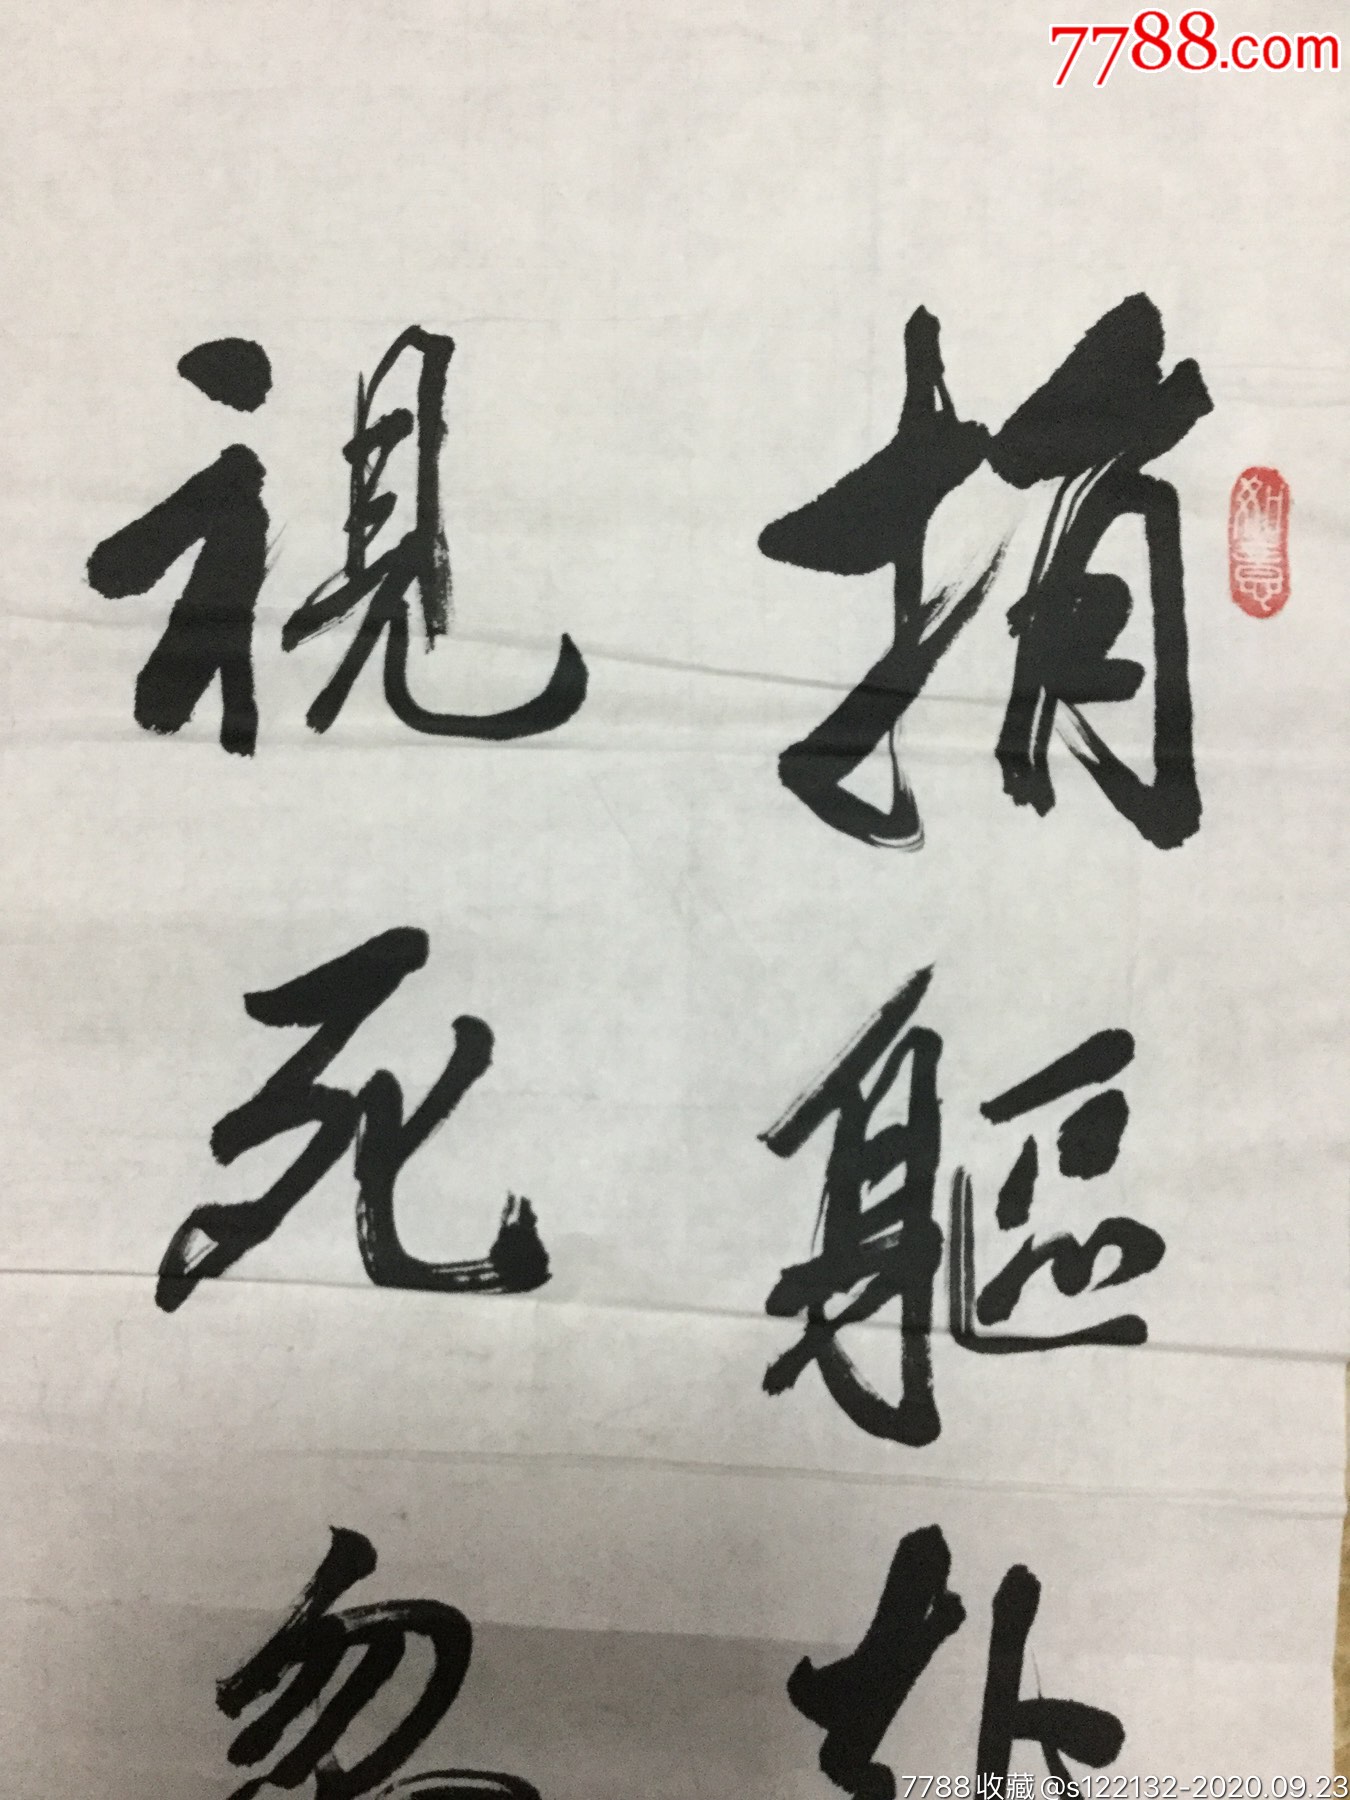 7788.com
如意
捐軀赴
視死忽
7788收藏@s122132-2020.09.23